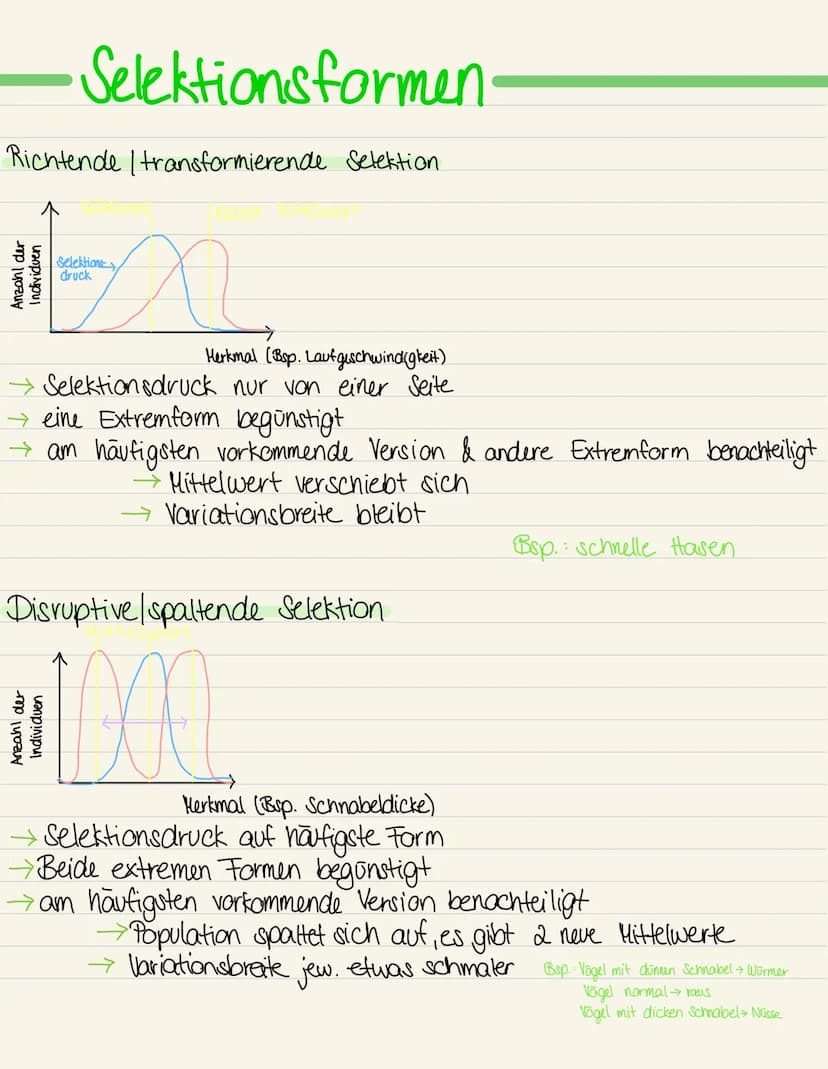 Selektionsformen
Richtende / transformierende Selektion
Mittelwert neuer Mittelwert
Anzahl der
Individuen
Selektions-
druck
Merkmal (Bsp. Laufgeschwindigkeit)
→ Selektionsdruck nur von einer Seite
→ eine Extremform begünstigt
→ am häufigsten vorkommende Version & andere Extremform benachteiligt
→ Mittelwert verschiebt sich
→ Variationsbreite bleibt
Bsp.: schnelle Hasen
Disruptive/spaltende Selektion
Anzahl der
Individuen
Merkmal (Bsp. Schnabeldicke)
→ Selektionsdruck auf häufigste Form
→ Beide extremen Formen begünstigt
→ am häufigsten vorkommende Version benachteiligt
→ Population spaltet sich auf, es gibt 2 neue Mittelwerte
→ Variationsbreite jew. etwas schmaler
Bsp.: Vögel mit dünnen Schnabel → Würmer
Vögel normal → raus
Vögel mit dicken Schnabel → Nüsse